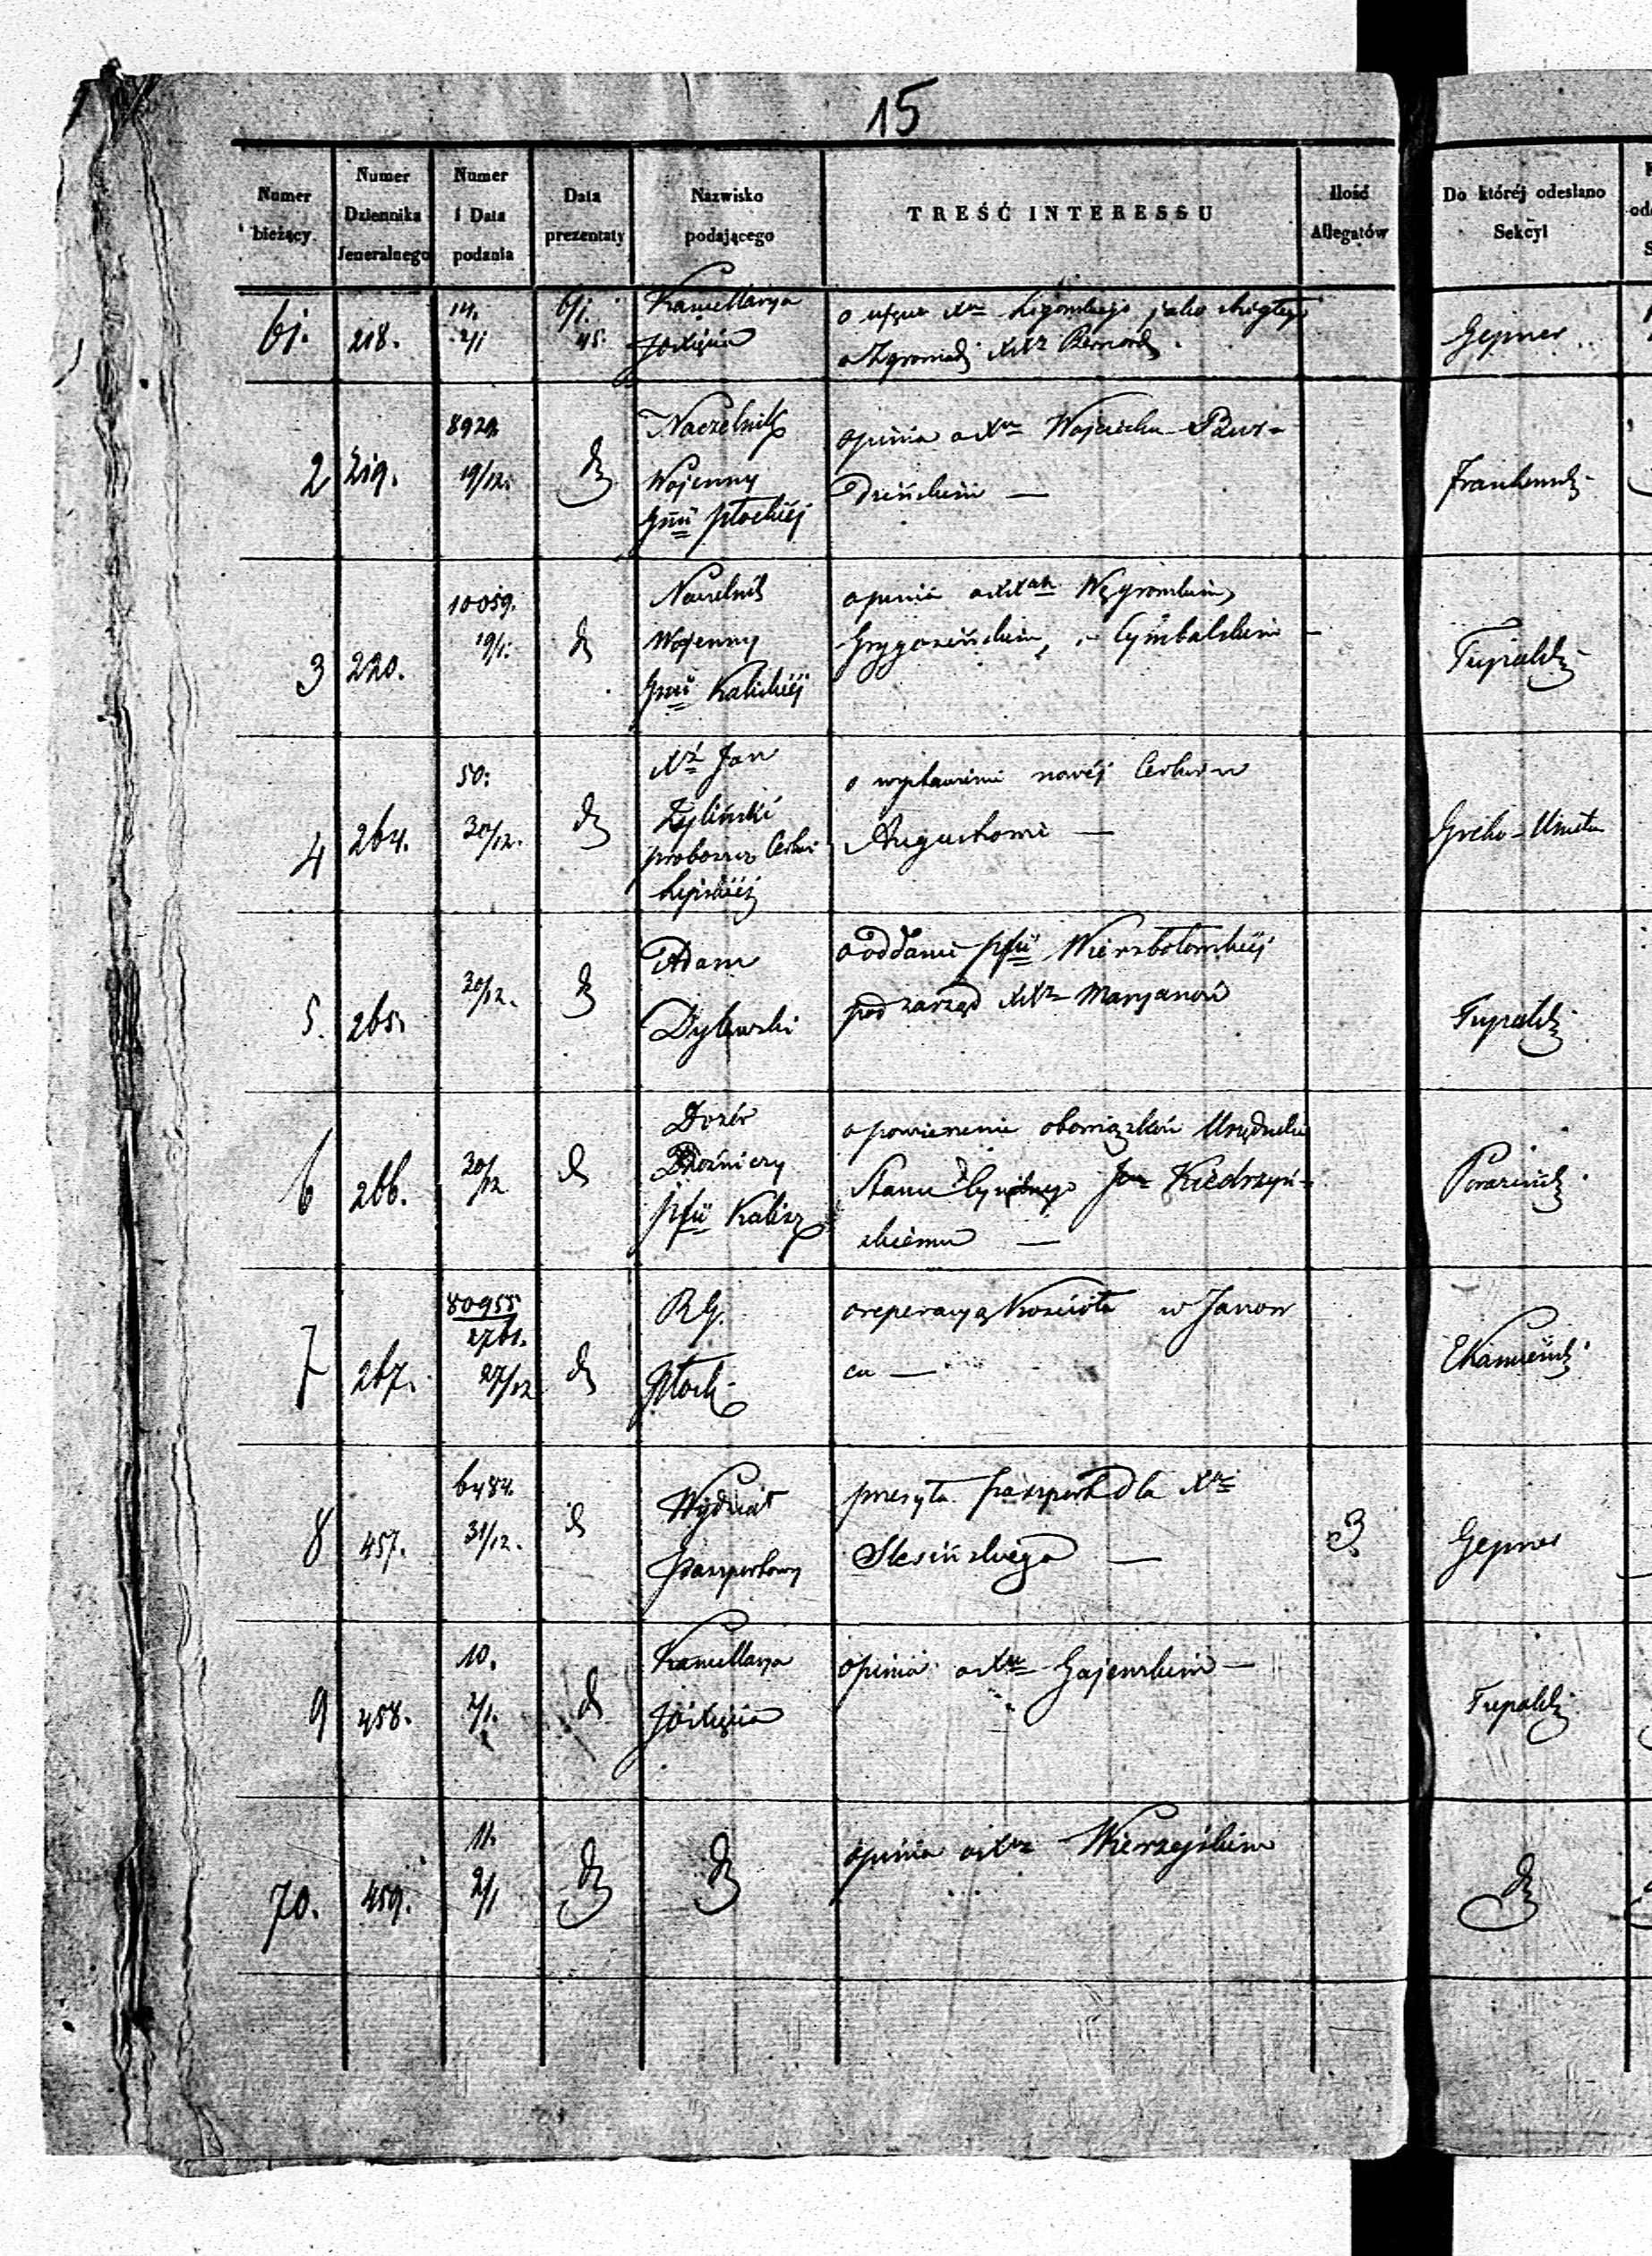 15
Numer bieżący
Numer Dziennika Jeneralnego
Numer i Data podania
Data prezentaty
Nazwisko podającego
TREŚĆ INTERESSU
Ilość Allegatów
Do któréj odesłano Sekcyi
61. 218. 14. 2/1 6/1. 45. Kancellarya JOXięcia
o Xu jako zbiegłego
o Zgromadz XXz Bernard. Gepner
2 219. 8929. 19/12. dto Naczelnik Wojenny Gnii Płockiéj
opinia o Xu Wojciechu
3 220. 10059. 19/1. dto Naczelnik Wojenny Gnii Kaliskiéj
opinia o XXach Węgrowskim,
Grygosińskim, i Cymbalskim — Tupalski
4 264. 50. 30/12. dto Xz Jan Żyliński proboszcz Cerkwi Lipskiéj
o wystawienie nowéj Cerkwi w
Augustowie — Greko-Unicka
5. 265. 30/12. dto Adam Dylewski
o oddanie pfii Wierzbołowskiéj
pod zarząd XXz Maryanów Tupalski
6 266. 30/12 dto Dozór Bóżniczy pfii Kalisz
o powierzenie obowiązków Urzędnika
Stanu Cywilnego Kiedrzyń-
skiemu —
7 267. 80955 27/12 dto RG. Płock.
o reperacyą Kościoła w Janow
cu —
8 457. 6484. 31/12. dto Wydział Passportowy
przesyła passport dla Xa
Slesińskiego — 3. Gepner
9 458. 10. 2/1. dto Kancellarya JOXięcia
opinia o Xu Gajewskim — Tupalski
70. 459. 11. 2/1 dto dto
opinia o Xu Wierzejskim dto